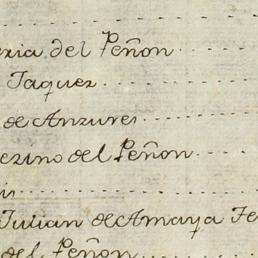 del Peñon
Taquez
de Anzures
del Peñon
Julian de Amaya
del Peñon